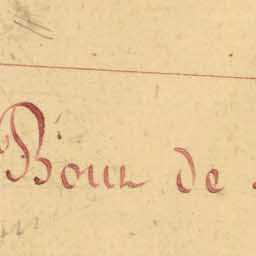 Bour de